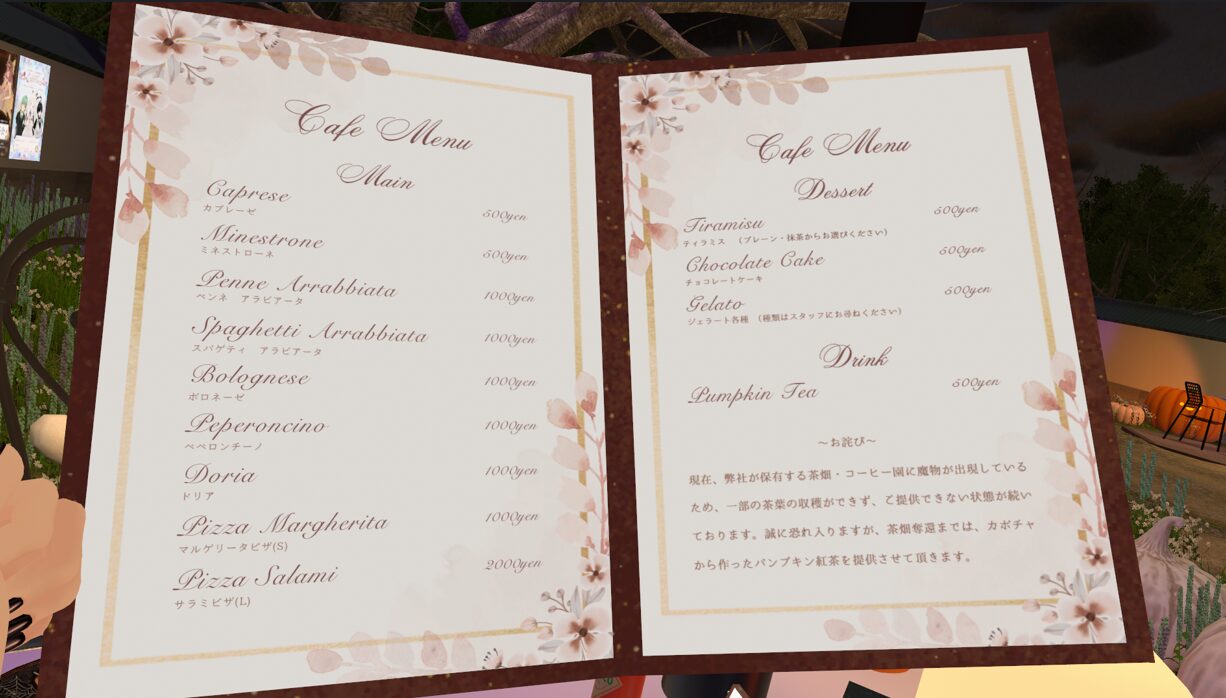 Cafe Menu
Main
Caprese
カプレーゼ
500yen
Minestrone
ミネストローネ
500yen
Penne Arrabbiata
ペンネ　アラビアータ
1000yen
Spaghetti Arrabbiata
スパゲティ　アラビアータ
1000yen
Bolognese
ボロネーゼ
1000yen
Peperoncino
ペペロンチーノ
1000yen
Doria
ドリア
1000yen
Pizza Margherita
マルゲリータピザ(S)
1000yen
Pizza Salami
サラミピザ(L)
2000yen
Cafe Menu
Dessert
Tiramisu
500yen
ティラミス　（プレーン・抹茶からお選びください）
Chocolate Cake
500yen
チョコレートケーキ
Gelato
500yen
ジェラート各種　（種類はスタッフにお尋ねください）
Drink
Pumpkin Tea
500yen
～お詫び～
現在、弊社が保有する茶畑・コーヒー園に魔物が出現している
ため、一部の茶葉の収穫ができず、ご提供できない状態が続い
ております。誠に恐れ入りますが、茶畑奪還までは、カボチャ
から作ったパンプキン紅茶を提供させて頂きます。